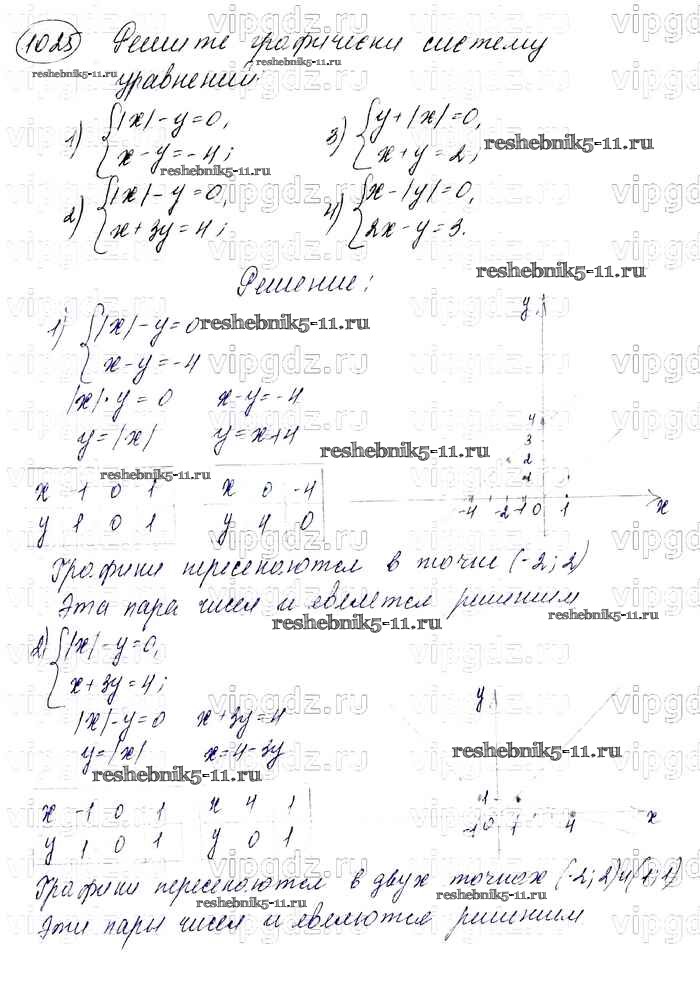 1025 Решите графически систему
уравнений:
1) {|x| - y = 0,
x - y = -4;
3) {y + |x| = 0,
x + y = 2;
2) {|x| - y = 0,
x + 3y = 4;
4) {x - |y| = 0,
2x - y = 3.
Решение:
1) {|x| - y = 0
x - y = -4
|x| - y = 0 x - y = -4
y = |x| y = x + 4
x 1 0 1 x 0 -4
y 1 0 1 y 4 0
y
4
3
2
-4 -2 -1 0 1 x
Графики пересекаются в точке (-2; 2)
Эта пара чисел и является решением
2) {|x| - y = 0,
x + 3y = 4;
|x| - y = 0 x + 3y = 4
y = |x| x = 4 - 3y
x -1 0 1 x 4 1
y 1 0 1 y 0 1
y
1
-1 0 1 4 x
Графики пересекаются в двух точках (-2; 2) и (1; 1)
Эти пары чисел и являются решением
reshebnik5-11.ru
vipgdz.ru